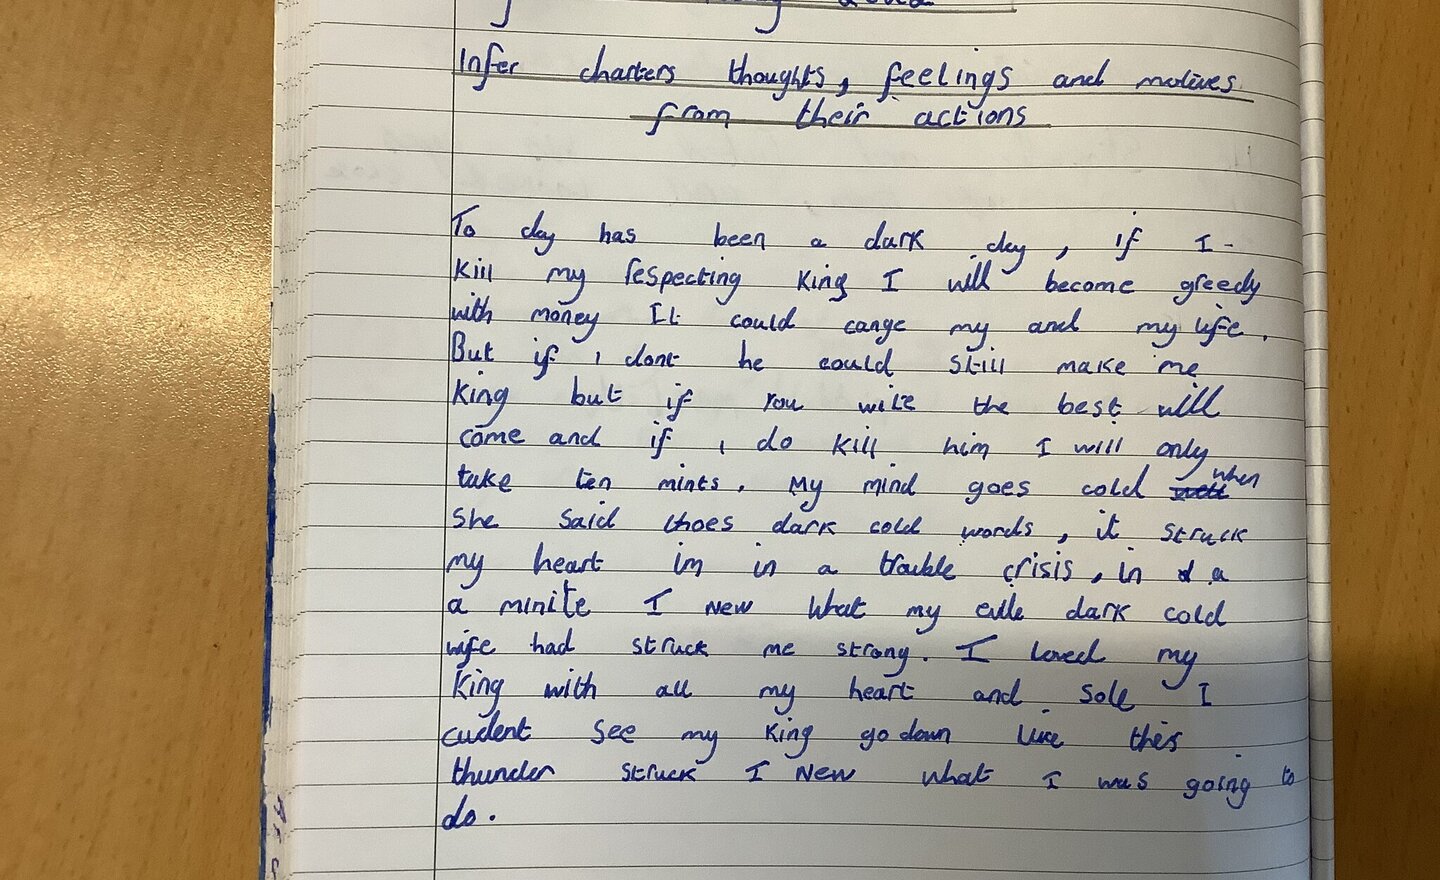 Infer charters thoughts, feelings and motives
from their actions
To day has been a dark day, if I -
kill my respecting king I will become greedy
with money It could cange my and my life.
But if i dont he could still make me
king but if you wite the best will
come and if i do kill him I will only
take ten mints. My mind goes cold when
she said thoes dark cold words, it struck
my heart im in a trouble crisis, in a
a minite I new what my eville dark cold
wife had struck me strong. I loved my
king with all my heart and sole I
cudent see my king go down like this
thunder struck I new what I was going to
do.